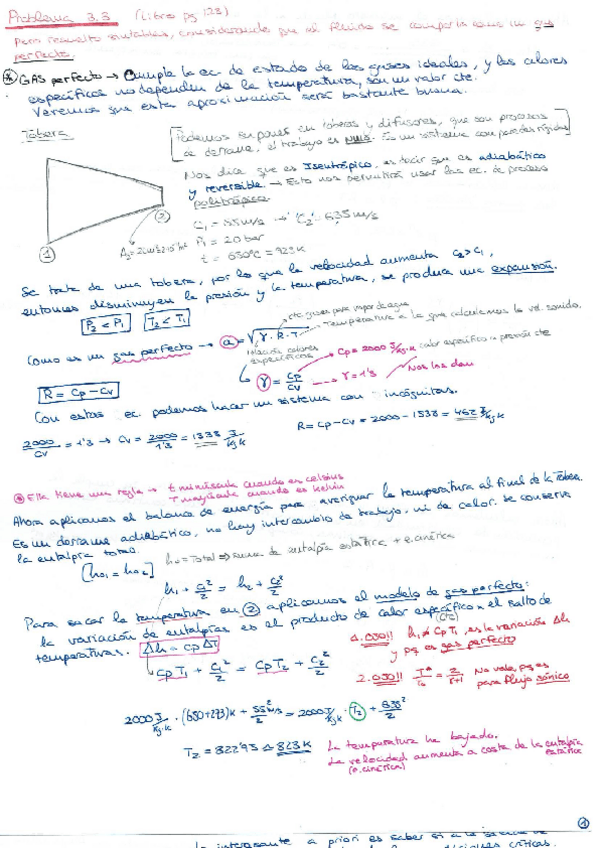 Problema 3.3 (Libro pg 123)
Pero resuelto sin tablas, considerando que el fluido se comporta como un gas
perfecto.
* GAS perfecto → Cumple la ec. de estado de los gases ideales, y los calores
específicos no dependen de la temperatura, son un valor cte.
Veremos que esta aproximación será bastante buena.
Tobera
Podemos suponer en toberas y difusores, que son procesos
de derrame, el trabajo es nulo. Es un sistema con paredes rígidas
Nos dice que es Isentrópico, es decir que es adiabático
y reversible → Esto nos permitirá usar las ec. de proceso
politrópico.
C₁ = 55 m/s → C₂ = 635 m/s
P₁ = 20 bar
t = 650ºC = 923K
1
2
Se trata de una tobera, por lo que la velocidad aumenta C₂ > C₁,
entonces disminuyen la presión y la temperatura, se produce una expansión.
P₂ < P₁ T₂ < T₁
cte gases para vapor de agua
Temperatura a la que calculemos la vel. sonido.
Como es un gas perfecto → a = √γ · R · T
calores
específicos
Cp = 2000 J/kg·K calor específico a presión cte
γ = Cp/Cv → γ = 1'3 Nos los dan
R = Cp - Cv
Con estas ec. podemos hacer un sistema con incógnitas.
2000/Cv = 1'3 → Cv = 2000/1'3 = 1538 J/kg K
R = Cp - Cv = 2000 - 1538 = 462 J/kg K
* Ella tiene una regla → t minúscula cuando es celsius
T mayúscula cuando es kelvin
Ahora aplicamos el balance de energía para averiguar la temperatura al final de la tobera.
Es un derrame adiabático, no hay intercambio de trabajo, ni de calor. Se conserva
la entalpía total.
[h₀₁ = h₀₂] h₀ = Total ⇒ suma de entalpía estática + e.cinética
h₁ + C₁²/2 = h₂ + C₂²/2
Para sacar la temperatura en ② aplicamos el modelo de gas perfecto:
la variación de entalpías es el producto de calor específico × el salto de
(cte)
temperaturas. Δh = Cp ΔT
1. OJO!! h₁ ≠ Cp T₁, es la variación Δh
y pq es gas perfecto
Cp T₁ + C₁²/2 = Cp T₂ + C₂²/2
2. OJO!! T*/T₀ = 2/γ+1 No vale, pq es
para flujo sónico
2000 J/kg·K · (650+273)K + 55²/2 m/s = 2000 J/kg·K · T₂ + 635²/2
T₂ = 822'95 ≙ 823K
La temperatura ha bajado.
La velocidad aumenta a costa de la entalpía
(e.cinética) estática
1
Lo interesante a priori es saber si a la
condiciones críticas.